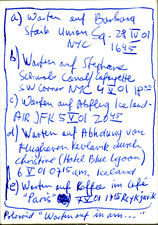 a) Warten auf Barbara
Stark Union Sq. 28 IV 01
NYC 1645
b) Warten auf Stephane
Canal/Lafayette
SW Corner NYC 4 V 01
c) Warten auf Abflug Iceland-
AIR JFK 5 V 01 2045
d) Warten auf Abholung vom
Flughaven Keflavik durch
Christine (Hotel Blue Lagoon)
6 V 01 0715 am. Iceland
e) Warten auf Koffer im Café
"Paris" 7 V 01 Reykjavik
Polaroid "Warten auf in am..."